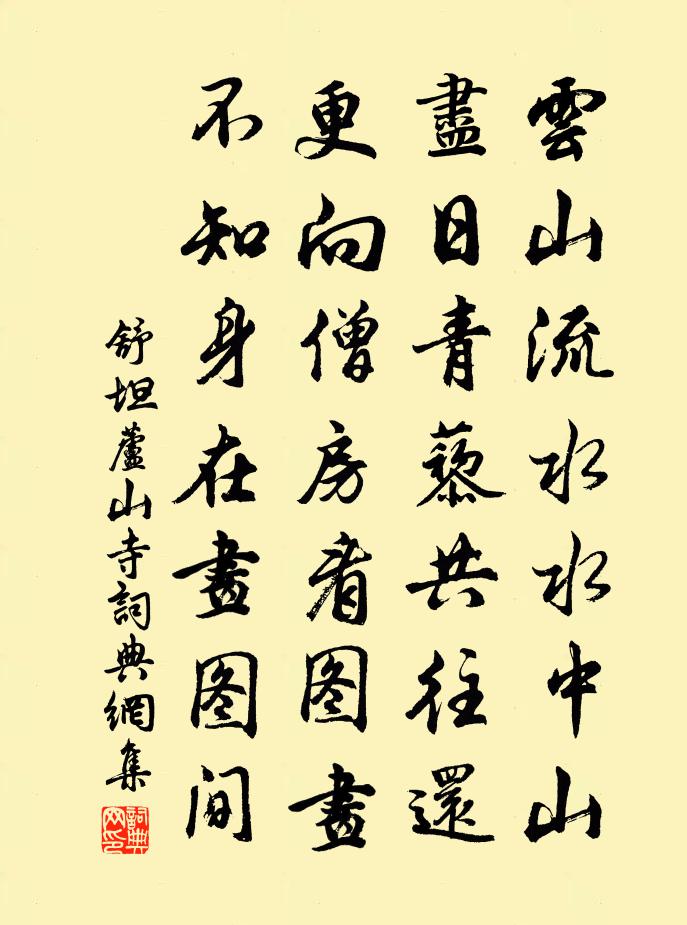 雲山流水水中山
盡日青藜共往還
更向僧房看图畫
不知身在畫图間
舒坦蘆山寺詞典網集
詞典网印